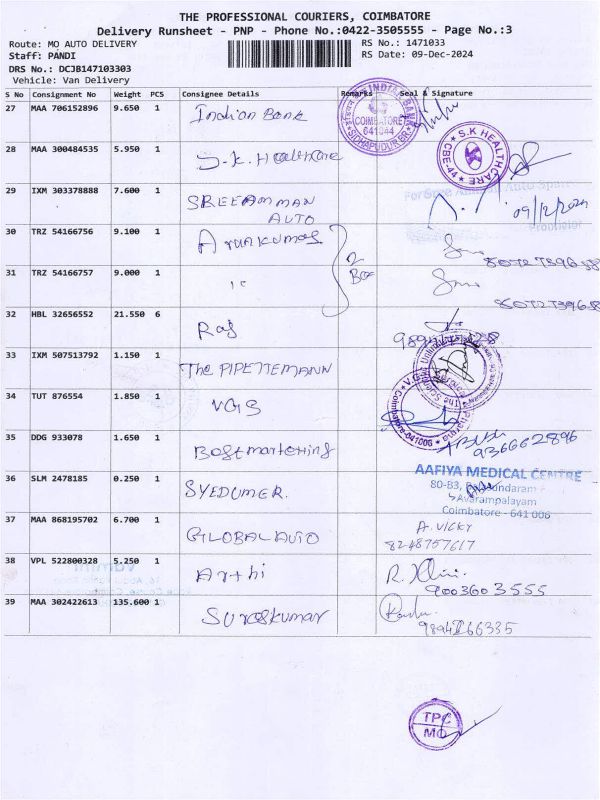 THE PROFESSIONAL COURIERS, COIMBATORE
Delivery Runsheet - PNP - Phone No.:0422-3505555 - Page No.:3
Route: MO AUTO DELIVERY RS No.: 1471033
Staff: PANDI RS Date: 09-Dec-2024
DRS No.: DCJB147103303
Vehicle: Van Delivery
S No Consignment No Weight PCS Consignee Details Remarks Seal & Signature
27 MAA 706152896 9.650 1 Indian Bank
INDIAN BANK
COIMBATORE
641044
SIDHAPUDUR BR
28 MAA 300484535 5.950 1 S.K. Healthcare
S.K HEALTHCARE
CBE-44
29 IXM 303378888 7.600 1 SREEAMMAN
AUTO
09/12/2024
Proprietor
30 TRZ 54166756 9.100 1 Arunkumar
2
Box
31 TRZ 54166757 9.000 1 "
32 HBL 32656552 21.550 6 Raj
33 IXM 507513792 1.150 1 The PIPETTEMANN
34 TUT 876554 1.850 1 VGS
35 DDG 933078 1.650 1 Bestmartering
9366662896
36 SLM 2478185 0.250 1 SYEDUMER.
AAFIYA MEDICAL CENTRE
80-B3,
Avarampalayam
Coimbatore - 641 006
37 MAA 868195702 6.700 1 GLOBAL AUTO
A. VICKY
8248757617
38 VPL 522800328 5.250 1 Arthi
9003603555
39 MAA 302422613 135.600 1 Sureskumar
TPC
MO